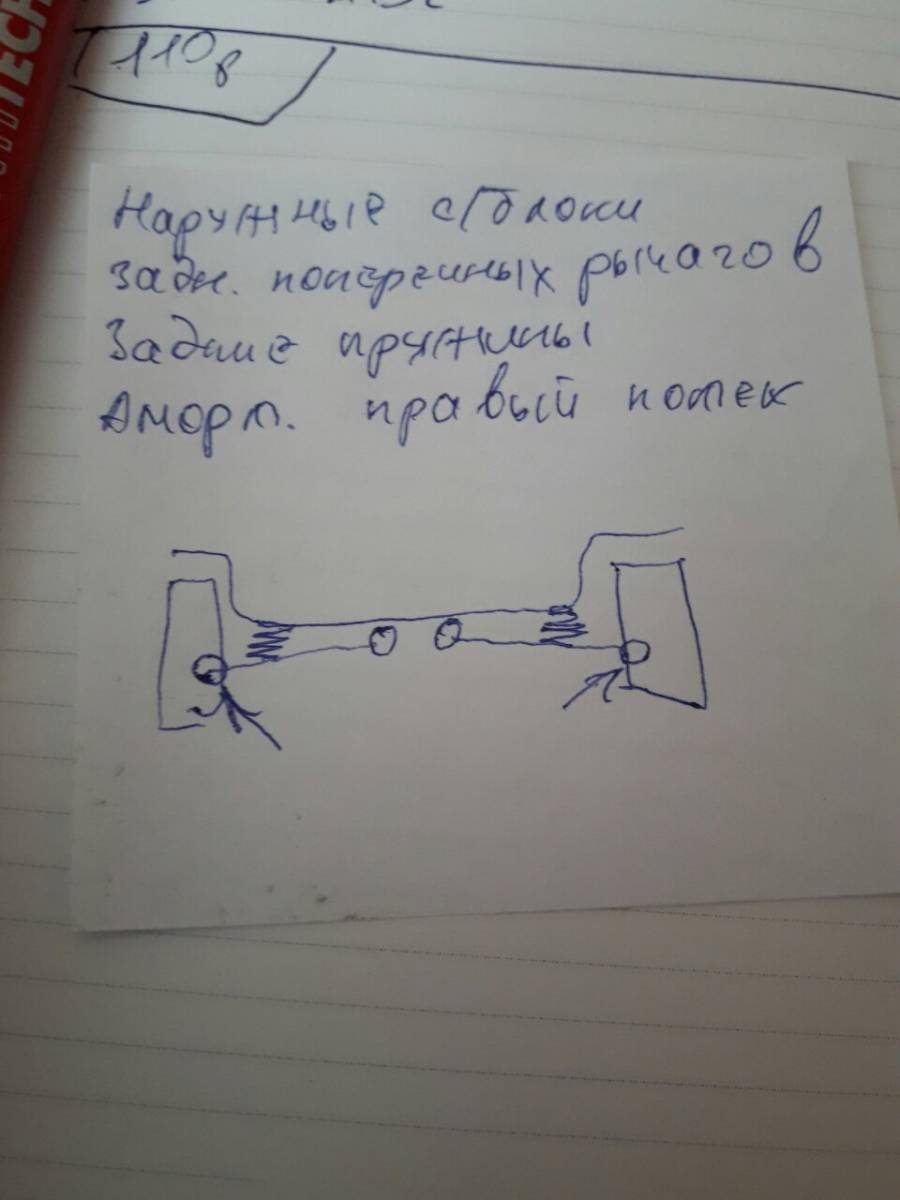 TECH
110 в
Наружные с/блоки
задн. поперечных рычагов
Задние пружины
Аморт. правый потек